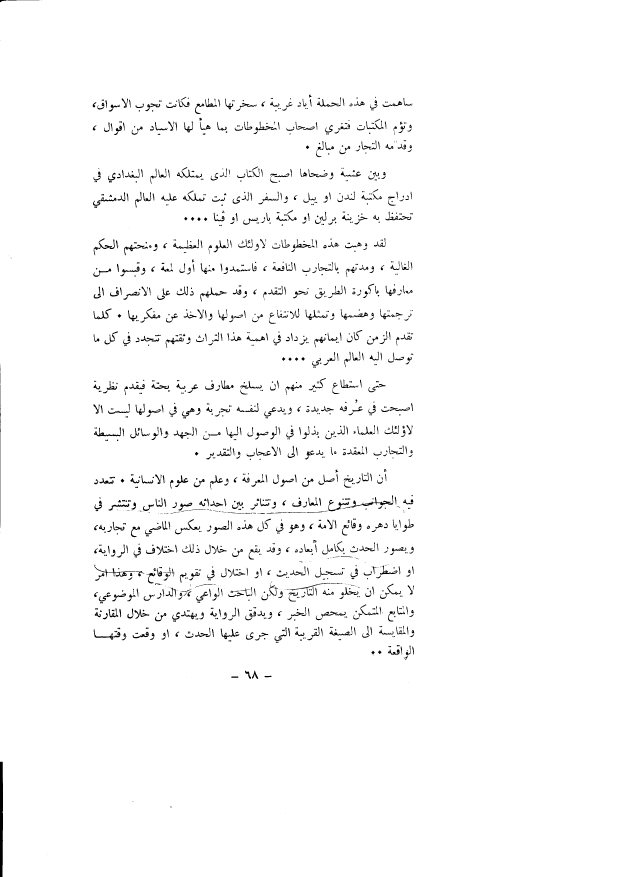 ساهمت في هذه الحملة أياد غريبة ، سخرتها المطامع فكانت تجوب الاسواق،
وتؤم المكتبات فتغري اصحاب المخطوطات بما هيأ لها الاسياد من اقوال ،
وقدمه التجار من مبالغ •
وبين عشية وضحاها اصبح الكتاب الذى يمتلكه العالم البغدادي في
ادراج مكتبة لندن او ييل ، والسفر الذى ثبت تملكه عليه العالم الدمشقي
تحتفظ به خزينة برلين او مكتبة باريس او ڤينا ••••
لقد وهبت هذه المخطوطات لاولئك العلوم العظيمة ، ومنحتهم الحكم
الغالية ، ومدتهم بالتجارب النافعة ، فاستمدوا منها أول لمعة ، وقبسوا مــن
معارفها باكورة الطريق نحو التقدم ، وقد حملهم ذلك على الانصراف الى
ترجمتها وهضمها وتمثلها للانتفاع من اصولها والاخذ عن مفكريها • كلما
تقدم الزمن كان ايمانهم يزداد في اهمية هذا التراث وثقتهم تتجدد في كل ما
توصل اليه العالم العربي ••••
حتى استطاع كثير منهم ان يسلخ مطارف عربية بحتة فيقدم نظرية
اصبحت في عُرفه جديدة ، ويدعي لنفسه تجربة وهي في اصولها ليست الا
لاؤلئك العلماء الذين بذلوا في الوصول اليها مــن الجهد والوسائل البسيطة
والتجارب المعقدة ما يدعو الى الاعجاب والتقدير •
أن التاريخ أصل من اصول المعرفة ، وعلم من علوم الانسانية • تتعدد
فيه الجوانب وتتنوع المعارف ، وتتناثر بين احداثه صور الناس وتنتشر في
طوايا دهره وقائع الامة ، وهو في كل هذه الصور يعكس الماضي مع تجاربه،
ويصور الحدث بكامل أبعاده ، وقد يقع من خلال ذلك اختلاف في الرواية،
او اضطراب في تسجيل الحديث ، او اختلال في تقويم الوقائع ، وهذا امر
لا يمكن ان يخلو منه التاريخ ولكن الباحث الواعي ، والدارس الموضوعي،
والمتابع المتمكن يمحص الخبر ، ويدقق الرواية ويهتدي من خلال المقارنة
والمقايسة الى الصيغة القريبة التي جرى عليها الحدث ، او وقعت وقتهــا
الواقعة ••
– ٦٨ –